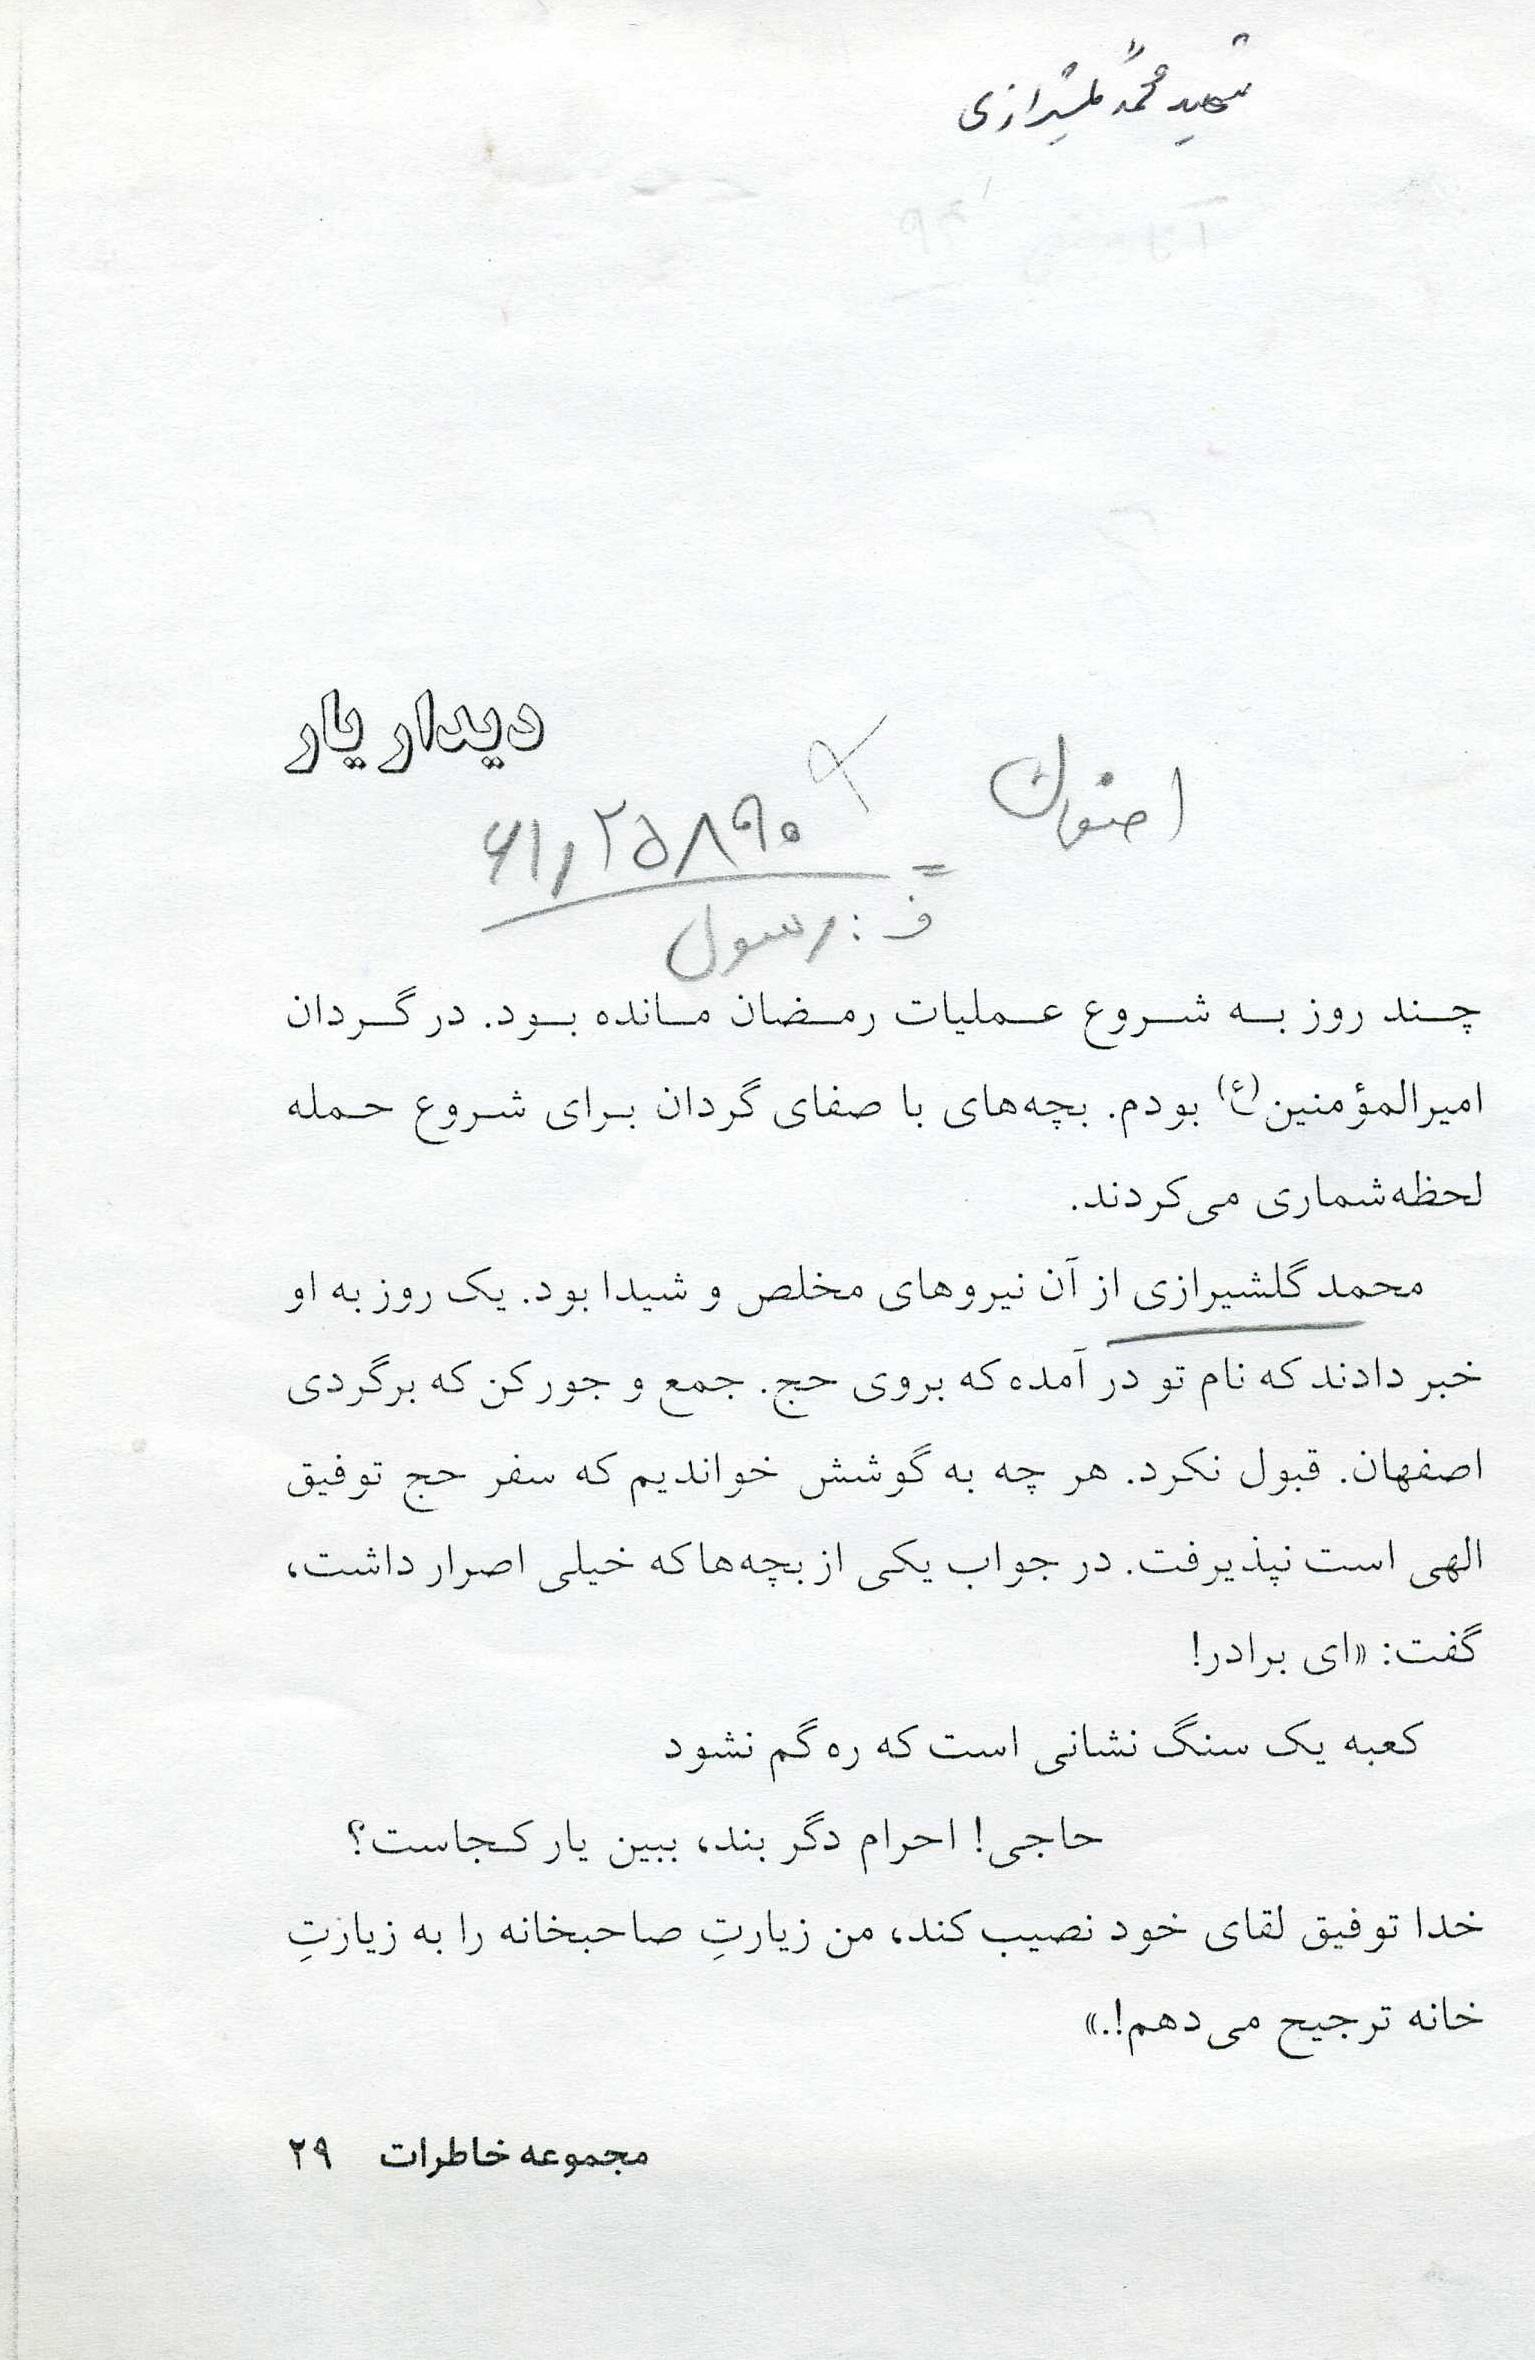 شهید محمد گلشیرازی
دیدار یار
اصفهان
۶۱٫۲۵۸۹۰
ف: رسول
چند روز به شروع عملیات رمضان مانده بود. در گردان
امیرالمؤمنین(ع) بودم. بچه‌های با صفای گردان برای شروع حمله
لحظه‌شماری می‌کردند.
محمد گلشیرازی از آن نیروهای مخلص و شیدا بود. یک روز به او
خبر دادند که نام تو در آمده که بروی حج. جمع و جور کن که برگردی
اصفهان. قبول نکرد. هر چه به گوشش خواندیم که سفر حج توفیق
الهی است نپذیرفت. در جواب یکی از بچه‌ها که خیلی اصرار داشت،
گفت: «ای برادر!
کعبه یک سنگ نشانی است که ره گم نشود
حاجی! احرام دگر بند، ببین یار کجاست؟
خدا توفیق لقای خود نصیب کند، من زیارتِ صاحبخانه را به زیارتِ
خانه ترجیح می‌دهم!.»
مجموعه خاطرات ۲۹